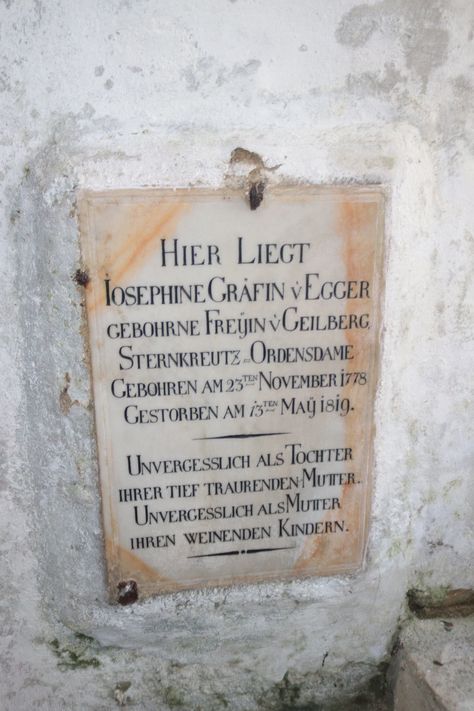 HIER LIEGT
IOSEPHINE GRÄFIN v̈ EGGER
GEBOHRNE FREŸIN v̈ GEILBERG,
STERNKREUTZ=ORDENSDAME
GEBOHREN AM 23TEN NOVEMBER 1778
GESTORBEN AM 13TEN MAŸ 1819.
UNVERGESSLICH ALS TOCHTER
IHRER TIEF TRAURENDEN MUTTER.
UNVERGESSLICH ALS MUTTER
IHREN WEINENDEN KINDERN.